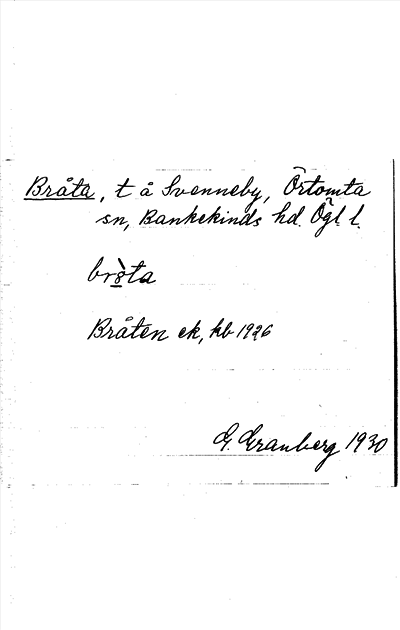 Bråta, t å Svenneby, Örtomta
sn, Bankekinds hd. Ögl l.
bròta
Bråten ek, kb 1926
G. Granberg 1930